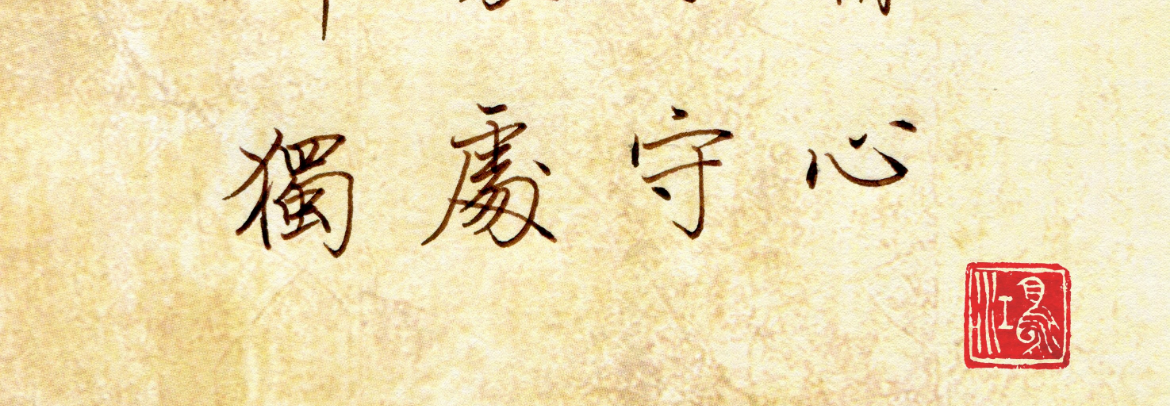 獨處守心